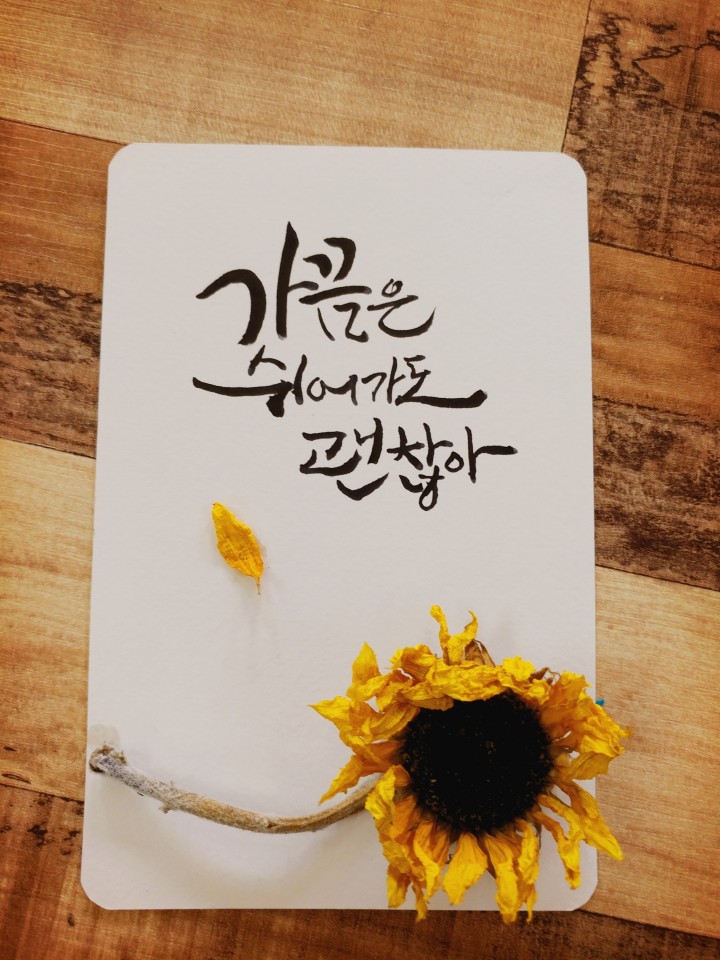 가끔은
쉬어가도
괜찮아